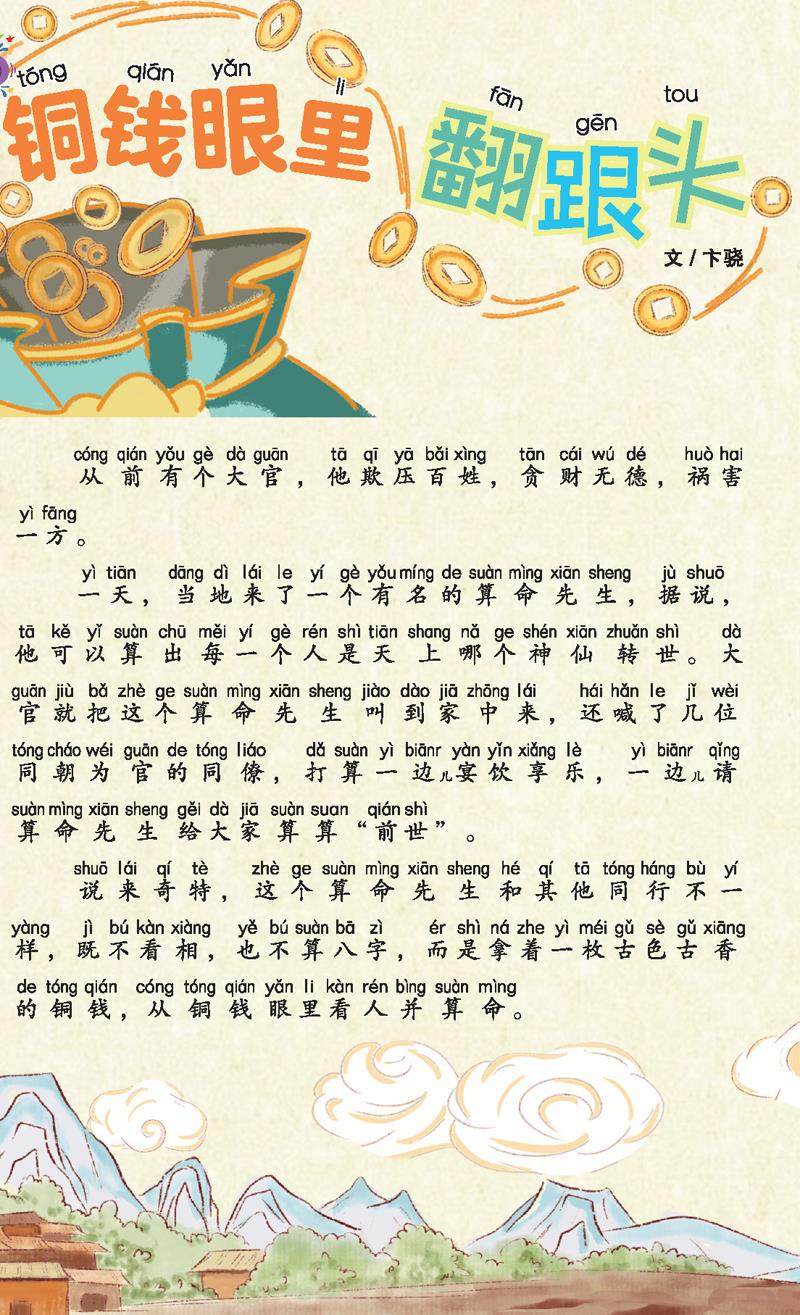 tóng qián yǎn li
铜钱眼里
fān gēn tou
翻跟头
文 / 卞骁
cóng qián yǒu gè dà guān tā qī yā bǎi xìng tān cái wú dé huò hai
从前有个大官，他欺压百姓，贪财无德，祸害
yì fāng
一方。
yì tiān dāng dì lái le yí gè yǒu míng de suàn mìng xiān sheng jù shuō
一天，当地来了一个有名的算命先生，据说，
tā kě yǐ suàn chū měi yí gè rén shì tiān shang nǎ ge shén xiān zhuǎn shì dà
他可以算出每一个人是天上哪个神仙转世。大
guān jiù bǎ zhè ge suàn mìng xiān sheng jiào dào jiā zhōng lái hái hǎn le jǐ wèi
官就把这个算命先生叫到家中来，还喊了几位
tóng cháo wéi guān de tóng liáo dǎ suàn yì biānr yàn yǐn xiǎng lè yì biānr qǐng
同朝为官的同僚，打算一边儿宴饮享乐，一边儿请
suàn mìng xiān sheng gěi dà jiā suàn suan qián shì
算命先生给大家算算“前世”。
shuō lái qí tè zhè ge suàn mìng xiān sheng hé qí tā tóng háng bù yí
说来奇特，这个算命先生和其他同行不一
yàng jì bú kàn xiàng yě bú suàn bā zì ér shì ná zhe yì méi gǔ sè gǔ xiāng
样，既不看相，也不算八字，而是拿着一枚古色古香
de tóng qián cóng tóng qián yǎn li kàn rén bìng suàn mìng
的铜钱，从铜钱眼里看人并算命。